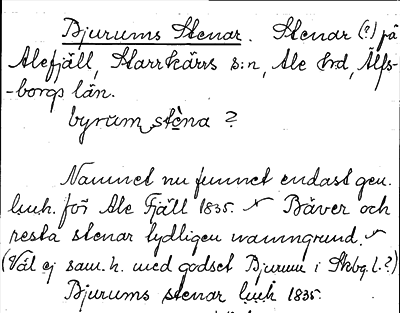 Bjurums Stenar. Stenar (?) på
Alefjäll, Starrkärrs s:n, Ale hrd, Älfs-
-borgs län.
byrum stèna ?
Namnet nu funnet endast gen.
lmk. för Ale Fjäll 1835. Bäver och
resta stenar tydligen namngrund.
(Väl ej sam.h. med godset Bjurum i Skbg. l.?)
Bjurums stenar lmk 1835.